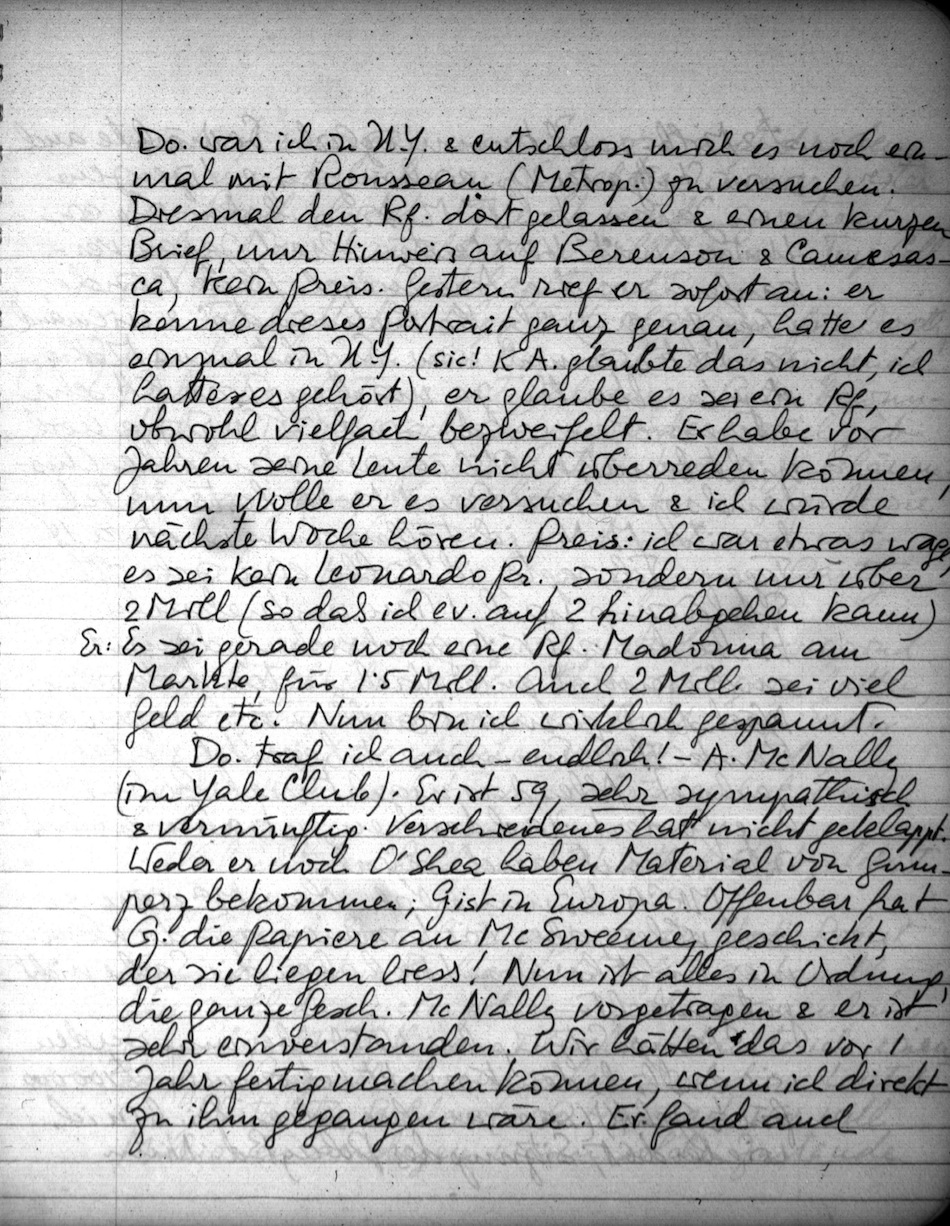 Do. war ich in N.Y. & entschloss mich es noch ein-
mal mit Rousseau (Metrop.) zu versuchen.
Diesmal den Rf. dort gelassen & einen kurzen
Brief, nur Hinweis auf Berenson & Camesas-
ca, kein Preis. Gestern rief er sofort an: er
kenne dieses Portrait ganz genau, hatte es
einmal in N.Y. (sic! K A. glaubte das nicht, ich
hatte es gehört), er glaube es sei ein Rf,
obwohl vielfach bezweifelt. Er habe vor
Jahren seine Leute nicht überreden können,
nun wolle er es versuchen & ich würde
nächste Woche hören. Preis: ich war etwas vage,
es sei kein Leonardo Pr., sondern nur über
2 Mill (so dass ich ev. auf 2 hinabgehen kann)
Er: Es sei gerade noch eine Rf. Madonna am
Markte, für 1·5 Mill. Auch 2 Mill. sei viel
Geld etc. Nun bin ich wirklich gespannt.
Do. traf ich auch – endlich! – A. McNally
(im Yale Club). Er ist 59, sehr sympathisch
& vernünftig. Verschiedenes hat nicht geklappt.
Weder er noch O'Shea haben Material von Gum-
perz bekommen; G ist in Europa. Offenbar hat
G. die Papiere an McSweeney geschickt,
der sie liegen liess! Nun ist alles in Ordnung,
die ganze Gesch. McNally vorgetragen & er ist
sehr einverstanden. Wir hätten das vor 1
Jahr fertigmachen können, wenn ich direkt
zu ihm gegangen wäre. Er fand auch